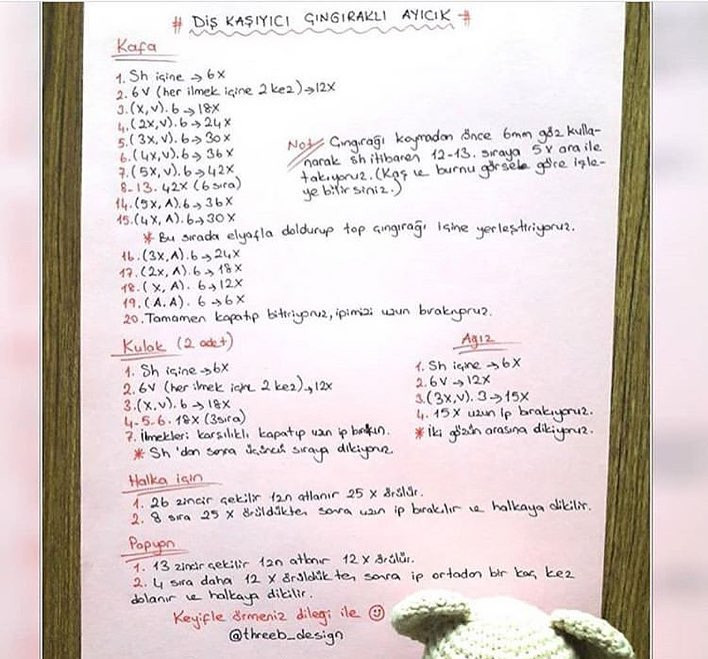 # DİŞ KAŞIYICI ÇINGIRAKLI AYICIK #
Kafa
1. Sh içine → 6x
2. 6V (her ilmek içine 2 kez) → 12x
3. (x, v). 6 → 18x
4. (2x, v). 6 → 24x
5. (3x, v). 6 → 30x
6. (4x, v). 6 → 36x
7. (5x, v). 6 → 42x
8-13. 42x (6 sıra)
14. (5x, A). 6 → 36x
15. (4x, A). 6 → 30x
Not/ Çıngırağı koymadan önce 6mm göz kulla-
narak sh itibaren 12-13. sıraya 5x ara ile
takıyoruz. (Kaş ve burnu görsele göre işle-
yebilirsiniz.)
* Bu sırada elyafla doldurup top çıngırağı içine yerleştiriyoruz.
16. (3x, A). 6 → 24x
17. (2x, A). 6 → 18x
18. (x, A). 6 → 12x
19. (A. A). 6 → 6x
20. Tamamen kapatıp bitiriyoruz, ipimizi uzun bırakıyoruz.
Kulak (2 adet)
1. Sh içine → 6x
2. 6V (her ilmek içine 2 kez) → 12x
3. (x, v). 6 → 18x
4-5-6. 18x (3 sıra)
7. İlmekleri karşılıklı kapatıp uzun ip bırakın.
* Sh'dan sonra üçüncü sıraya dikiyoruz.
Ağız
1. Sh içine → 6x
2. 6V → 12x
3. (3x, v). 3 → 15x
4. 15x uzun ip bırakıyoruz.
* İki gözün arasına dikiyoruz.
Halka için
1. 26 zincir çekilir 1zn atlanır 25 x örülür.
2. 8 sıra 25 x örüldükten sonra uzun ip bırakılır ve halkaya dikilir.
Papyon
1. 13 zincir çekilir 1zn atlanır 12 x örülür.
2. 4 sıra daha 12 x örüldükten sonra ip ortadan bir kaç kez
dolanır ve halkaya dikilir.
Keyifle örmeniz dileği ile ☺
@threeb_design